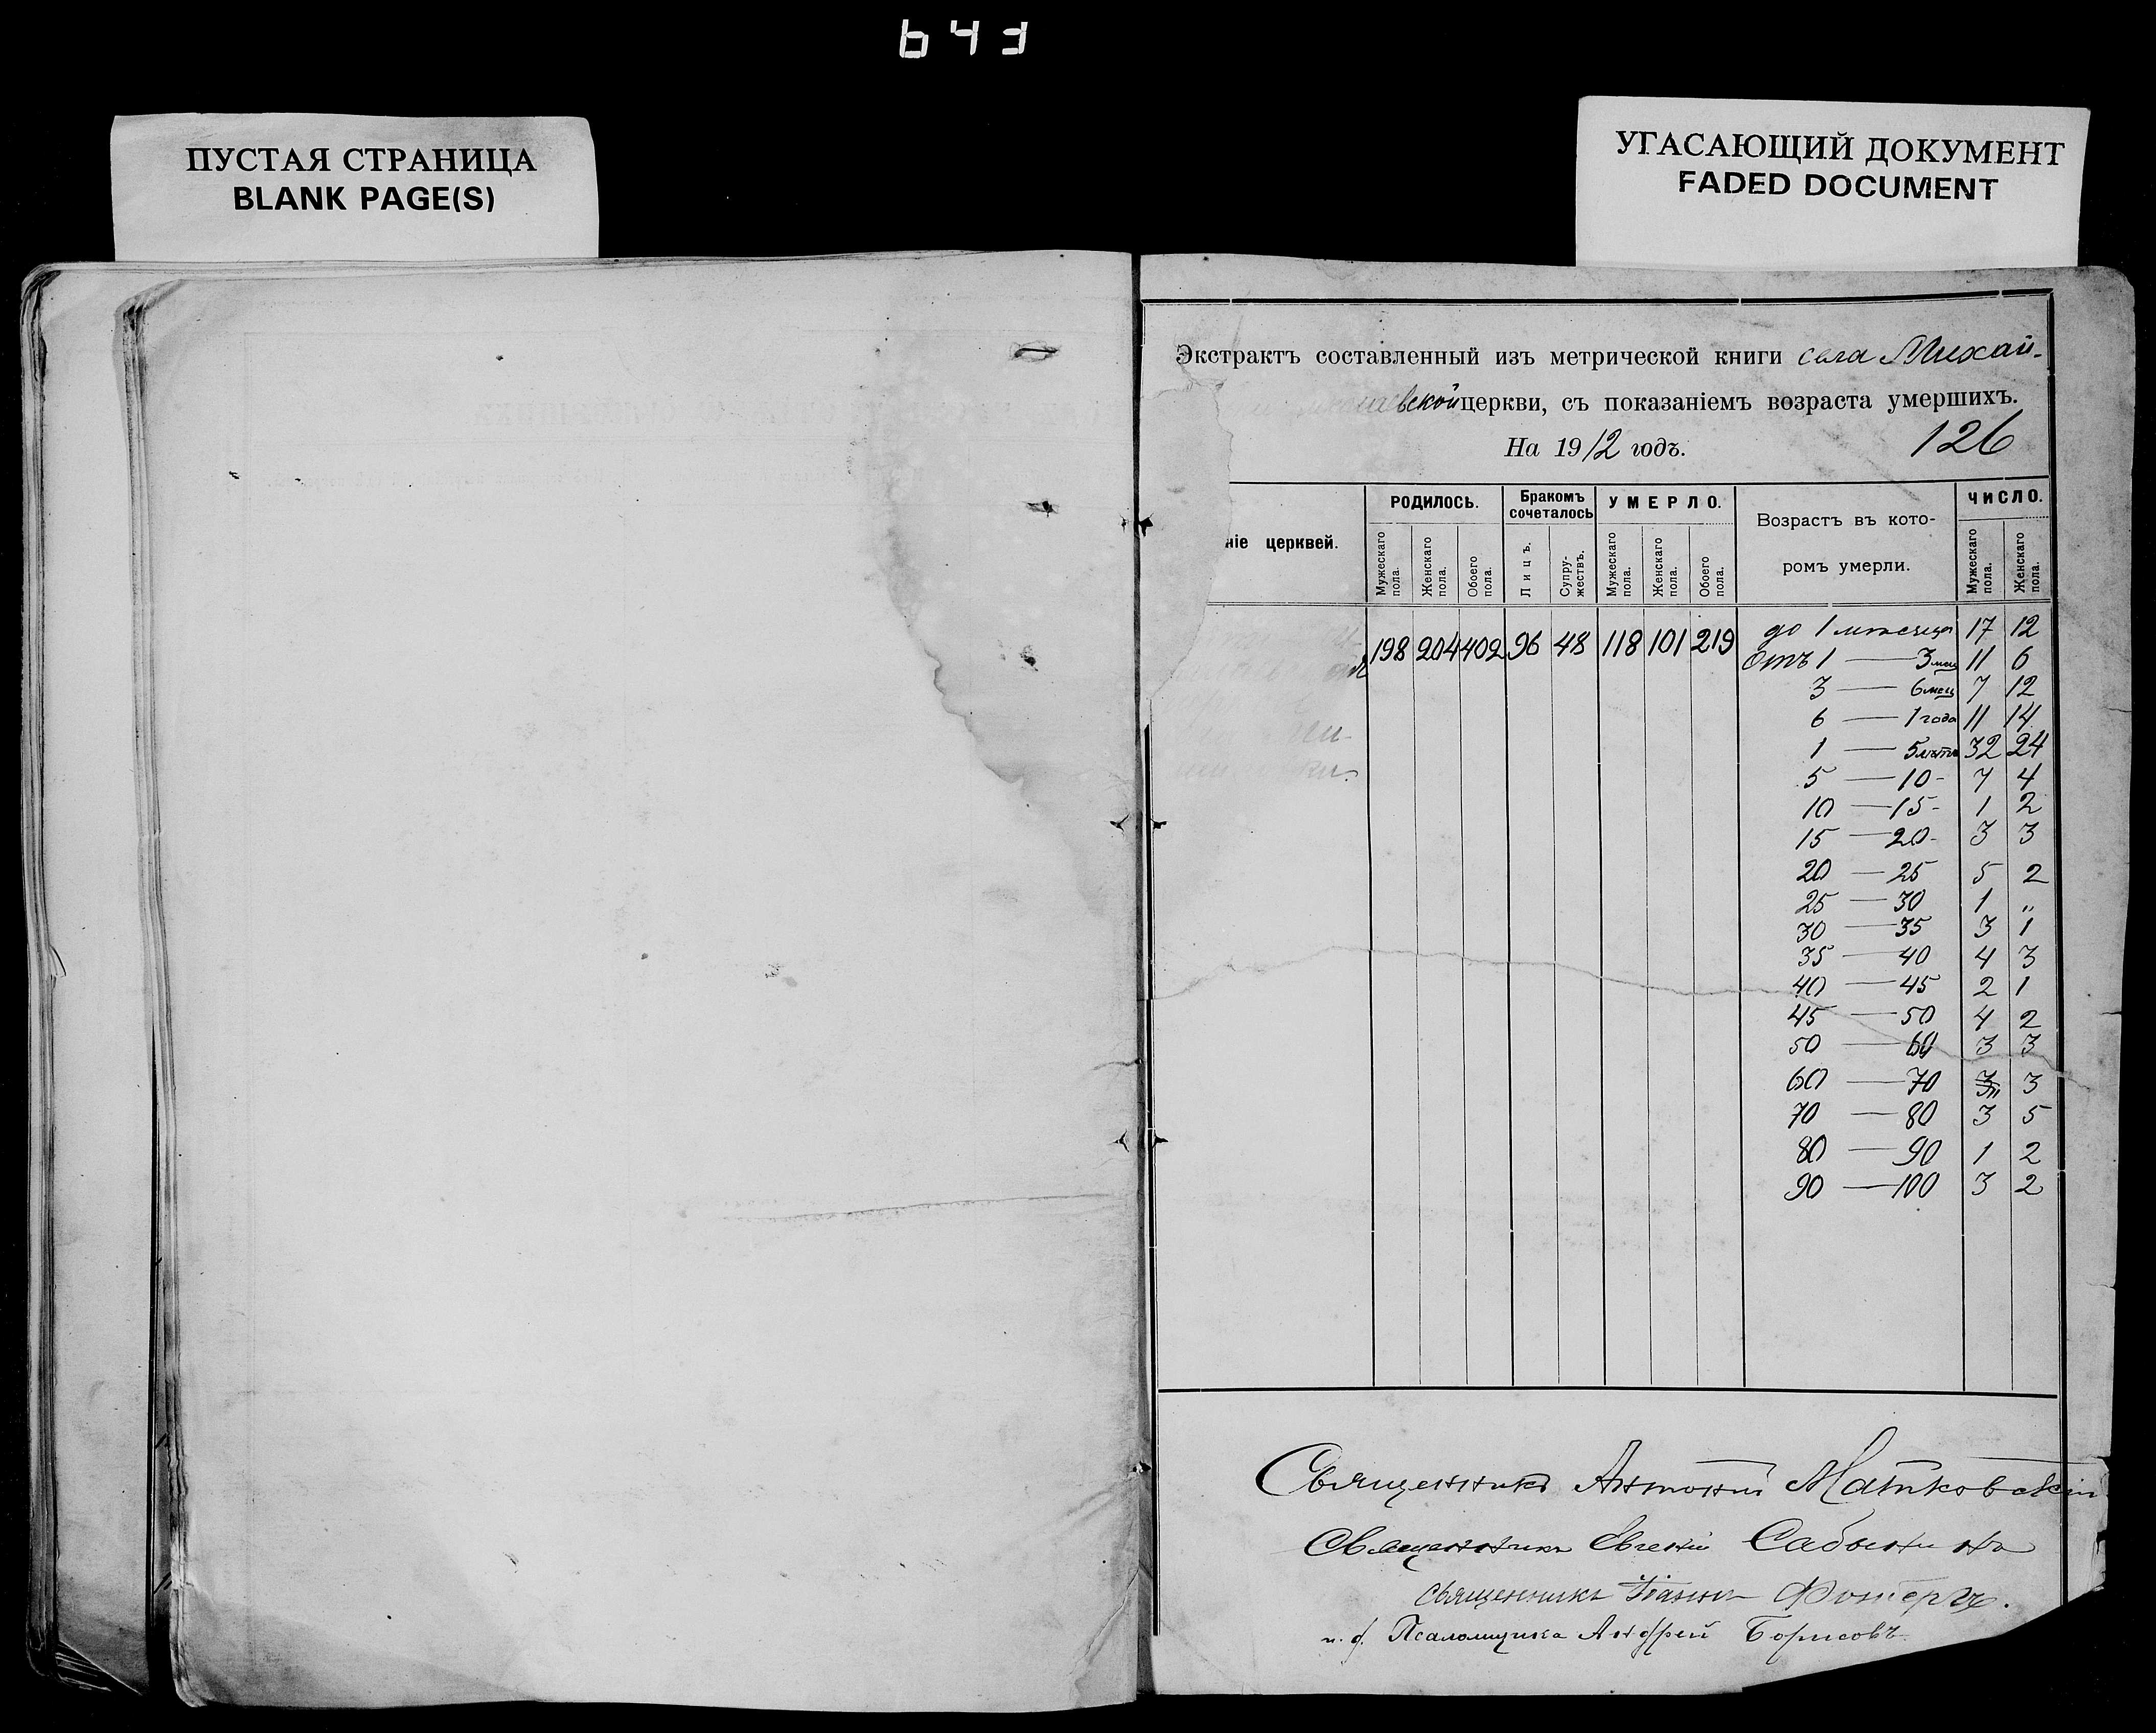 643
ПУСТАЯ СТРАНИЦА
BLANK PAGE(S)
УГАСАЮЩИЙ ДОКУМЕНТ
FADED DOCUMENT
Экстрактъ составленный изъ метрической книги села Михай-
вской церкви, съ показаніемъ возраста умершихъ.
На 1912 годъ.
126
ніе церквей.
РОДИЛОСЬ.
Бракомъ сочеталось
УМЕРЛО.
Возрастъ въ кото-
ромъ умерли.
ЧИСЛО.
Мужескаго пола.
Женскаго пола.
Обоего пола.
Лицъ.
Супру-жествъ.
Мужескаго пола.
Женскаго пола.
Обоего пола.
Мужескаго пола.
Женскаго пола.
198 204 402 96 48 118 101 219
до 1 месяца 17 12
Отъ 1 — 3 мец 11 6
3 — 6 мец 7 12
6 — 1 года 11 14
1 — 5 лѣтъ 32 24
5 — 10 - 7 4
10 — 15 - 1 2
15 — 20 - 3 3
20 — 25 5 2
25 — 30 1 „
30 — 35 3 1
35 — 40 4 3
40 — 45 2 1
45 — 50 4 2
50 — 60 3 3
60 — 70 „ 3
70 — 80 3 5
80 — 90 1 2
90 — 100 3 2
Священникъ Антоній Матковскій
Священникъ Евгеній Сабынинъ
священникъ
и. д. Псаломщика Андрей Борисовъ